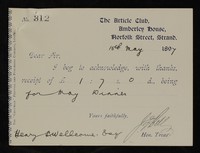 No 812
The Article Club,
Amberley House,
Norfolk Street, Strand.
12th May 1897
Dear Sir,
I beg to acknowledge, with thanks,
receipt of £ 1 : 7 : 0 d. being
for May Dinner
Yours faithfully,
Hon. Treas.
Henry S. Wellcome Esq